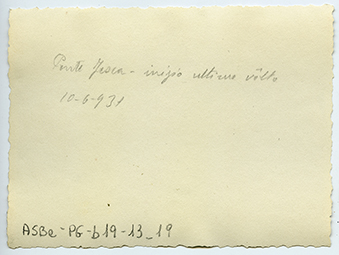 Ponte Gesca - inizio ultima vôlta
10-6-931
ASBe-PG-b19-13_19